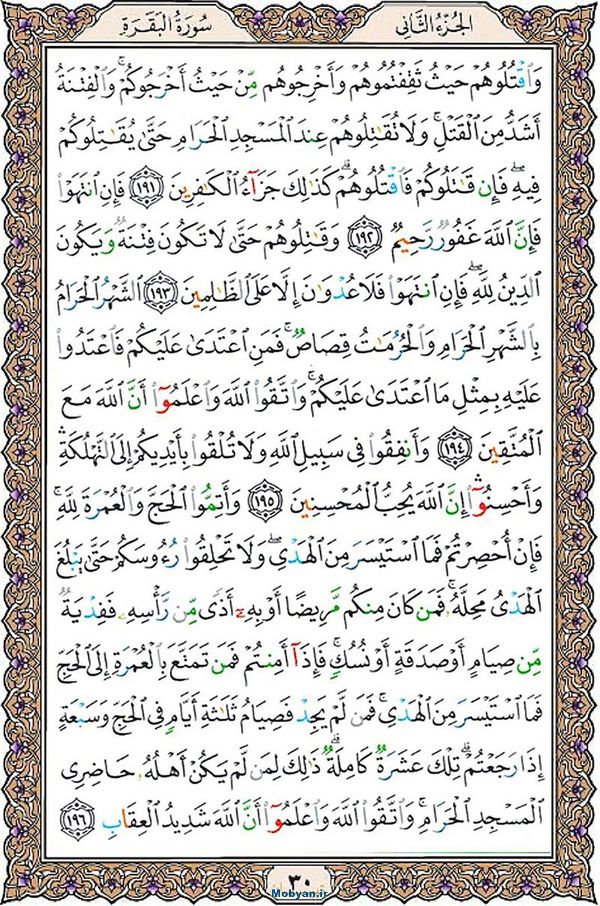 الجُزءُ الثَّانِي
سُورَةُ البَقَرَةِ
وَاقْتُلُوهُمْ حَيْثُ ثَقِفْتُمُوهُمْ وَأَخْرِجُوهُم مِّنْ حَيْثُ أَخْرَجُوكُمْ ۚ وَالْفِتْنَةُ
أَشَدُّ مِنَ الْقَتْلِ ۚ وَلَا تُقَاتِلُوهُمْ عِندَ الْمَسْجِدِ الْحَرَامِ حَتَّىٰ يُقَاتِلُوكُمْ
فِيهِ ۖ فَإِن قَاتَلُوكُمْ فَاقْتُلُوهُمْ ۗ كَذَٰلِكَ جَزَاءُ الْكَافِرِينَ ﴿١٩١﴾ فَإِنِ انتَهَوْا
فَإِنَّ اللَّهَ غَفُورٌ رَّحِيمٌ ﴿١٩٢﴾ وَقَاتِلُوهُمْ حَتَّىٰ لَا تَكُونَ فِتْنَةٌ وَيَكُونَ
الدِّينُ لِلَّهِ ۖ فَإِنِ انتَهَوْا فَلَا عُدْوَانَ إِلَّا عَلَى الظَّالِمِينَ ﴿١٩٣﴾ الشَّهْرُ الْحَرَامُ
بِالشَّهْرِ الْحَرَامِ وَالْحُرُمَاتُ قِصَاصٌ ۚ فَمَنِ اعْتَدَىٰ عَلَيْكُمْ فَاعْتَدُوا
عَلَيْهِ بِمِثْلِ مَا اعْتَدَىٰ عَلَيْكُمْ ۚ وَاتَّقُوا اللَّهَ وَاعْلَمُوا أَنَّ اللَّهَ مَعَ
الْمُتَّقِينَ ﴿١٩٤﴾ وَأَنفِقُوا فِي سَبِيلِ اللَّهِ وَلَا تُلْقُوا بِأَيْدِيكُمْ إِلَى التَّهْلُكَةِ ۛ
وَأَحْسِنُوا ۛ إِنَّ اللَّهَ يُحِبُّ الْمُحْسِنِينَ ﴿١٩٥﴾ وَأَتِمُّوا الْحَجَّ وَالْعُمْرَةَ لِلَّهِ ۚ
فَإِنْ أُحْصِرْتُمْ فَمَا اسْتَيْسَرَ مِنَ الْهَدْيِ ۖ وَلَا تَحْلِقُوا رُءُوسَكُمْ حَتَّىٰ يَبْلُغَ
الْهَدْيُ مَحِلَّهُ ۚ فَمَن كَانَ مِنكُم مَّرِيضًا أَوْ بِهِ أَذًى مِّن رَّأْسِهِ فَفِدْيَةٌ
مِّن صِيَامٍ أَوْ صَدَقَةٍ أَوْ نُسُكٍ ۚ فَإِذَا أَمِنتُمْ فَمَن تَمَتَّعَ بِالْعُمْرَةِ إِلَى الْحَجِّ
فَمَا اسْتَيْسَرَ مِنَ الْهَدْيِ ۚ فَمَن لَّمْ يَجِدْ فَصِيَامُ ثَلَاثَةِ أَيَّامٍ فِي الْحَجِّ وَسَبْعَةٍ
إِذَا رَجَعْتُمْ ۗ تِلْكَ عَشَرَةٌ كَامِلَةٌ ۗ ذَٰلِكَ لِمَن لَّمْ يَكُنْ أَهْلُهُ حَاضِرِي
الْمَسْجِدِ الْحَرَامِ ۚ وَاتَّقُوا اللَّهَ وَاعْلَمُوا أَنَّ اللَّهَ شَدِيدُ الْعِقَابِ ﴿١٩٦﴾
٣٠
Mobyan.ir